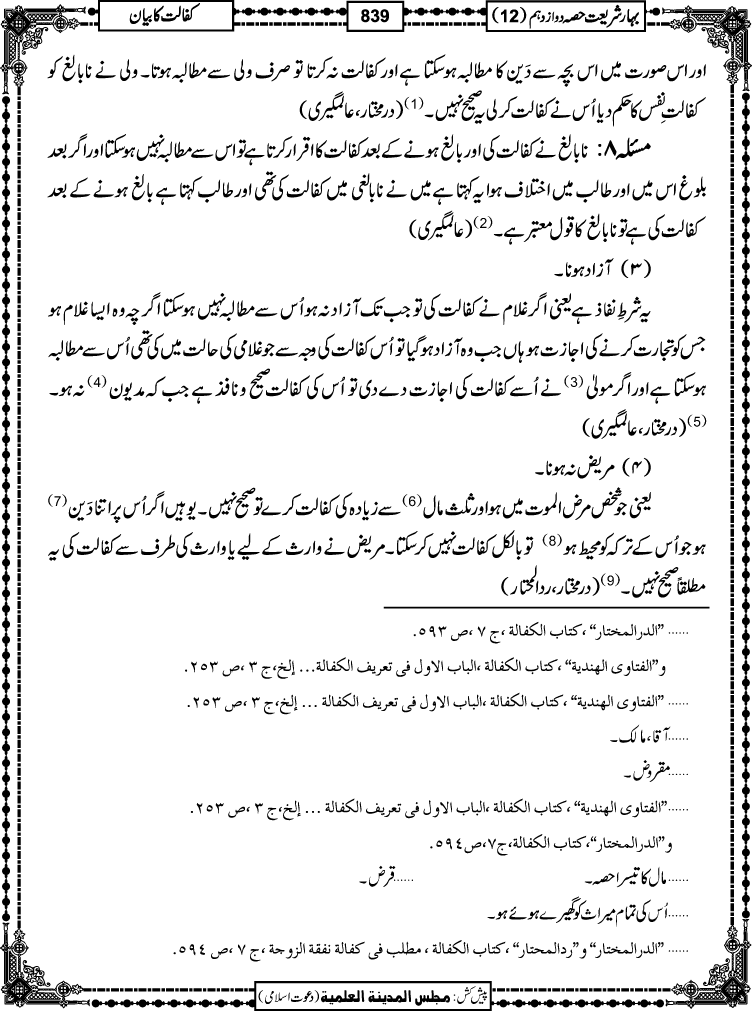 بہارِ شریعت حصہ دوازدہم (12)
839
کفالت کا بیان
اور اس صورت میں اس بچہ سے دَین کا مطالبہ ہوسکتا ہے اور کفالت نہ کرتا تو صرف ولی سے مطالبہ ہوتا۔ ولی نے نابالغ کو
کفالتِ نفس کا حکم دیا اُس نے کفالت کرلی یہ صحیح نہیں۔(1) (درمختار، عالمگیری)
مسئلہ ۸: نابالغ نے کفالت کی اور بالغ ہونے کے بعد کفالت کا اقرار کرتا ہے تو اس سے مطالبہ نہیں ہوسکتا اور اگر بعد
بلوغ اس میں اور طالب میں اختلاف ہوا یہ کہتا ہے میں نے نابالغی میں کفالت کی تھی اور طالب کہتا ہے بالغ ہونے کے بعد
کفالت کی ہے تو نابالغ کا قول معتبر ہے۔(2) (عالمگیری)
(۳) آزاد ہونا۔
یہ شرطِ نفاذ ہے یعنی اگر غلام نے کفالت کی تو جب تک آزاد نہ ہو اُس سے مطالبہ نہیں ہوسکتا اگرچہ وہ ایسا غلام ہو
جس کو تجارت کرنے کی اجازت ہو ہاں جب وہ آزاد ہوگیا تو اُس کفالت کی وجہ سے جو غلامی کی حالت میں کی تھی اُس سے مطالبہ
ہوسکتا ہے اور اگر مولیٰ(3) نے اُسے کفالت کی اجازت دے دی تو اُس کی کفالت صحیح و نافذ ہے جب کہ مدیون(4) نہ ہو۔
(5) (درمختار، عالمگیری)
(۴) مریض نہ ہونا۔
یعنی جو شخص مرض الموت میں ہو اور ثلث مال(6) سے زیادہ کی کفالت کرے تو صحیح نہیں۔ یوہیں اگر اُس پر اتنا دَین(7)
ہو جو اُس کے ترکہ کو محیط ہو(8) تو بالکل کفالت نہیں کرسکتا۔ مریض نے وارث کے لیے یا وارث کی طرف سے کفالت کی یہ
مطلقاً صحیح نہیں۔(9) (درمختار، ردالمحتار)
......”الدرالمختار“، کتاب الکفالة، ج ۷، ص ۵۹۳.
و”الفتاوی الهندية“، کتاب الکفالة، الباب الاول فی تعریف الکفالة... إلخ، ج ۳، ص ۲۵۳.
......”الفتاوی الهندية“، کتاب الکفالة، الباب الاول فی تعریف الکفالة... إلخ، ج ۳، ص ۲۵۳.
......آقا، مالک۔
......مقروض۔
......”الفتاوی الهندية“، کتاب الکفالة، الباب الاول فی تعریف الکفالة... إلخ، ج ۳، ص ۲۵۳.
و”الدرالمختار“، کتاب الکفالة، ج۷، ص۵۹٤.
......مال کا تیسرا حصہ۔ ......قرض۔
......اُس کی تمام میراث کو گھیرے ہوئے ہو۔
......”الدرالمختار“ و”ردالمحتار“، کتاب الکفالة، مطلب فی کفالة نفقة الزوجة، ج ۷، ص ۵۹٤.
پیش کش: مجلس المدینة العلمیة (دعوتِ اسلامی)